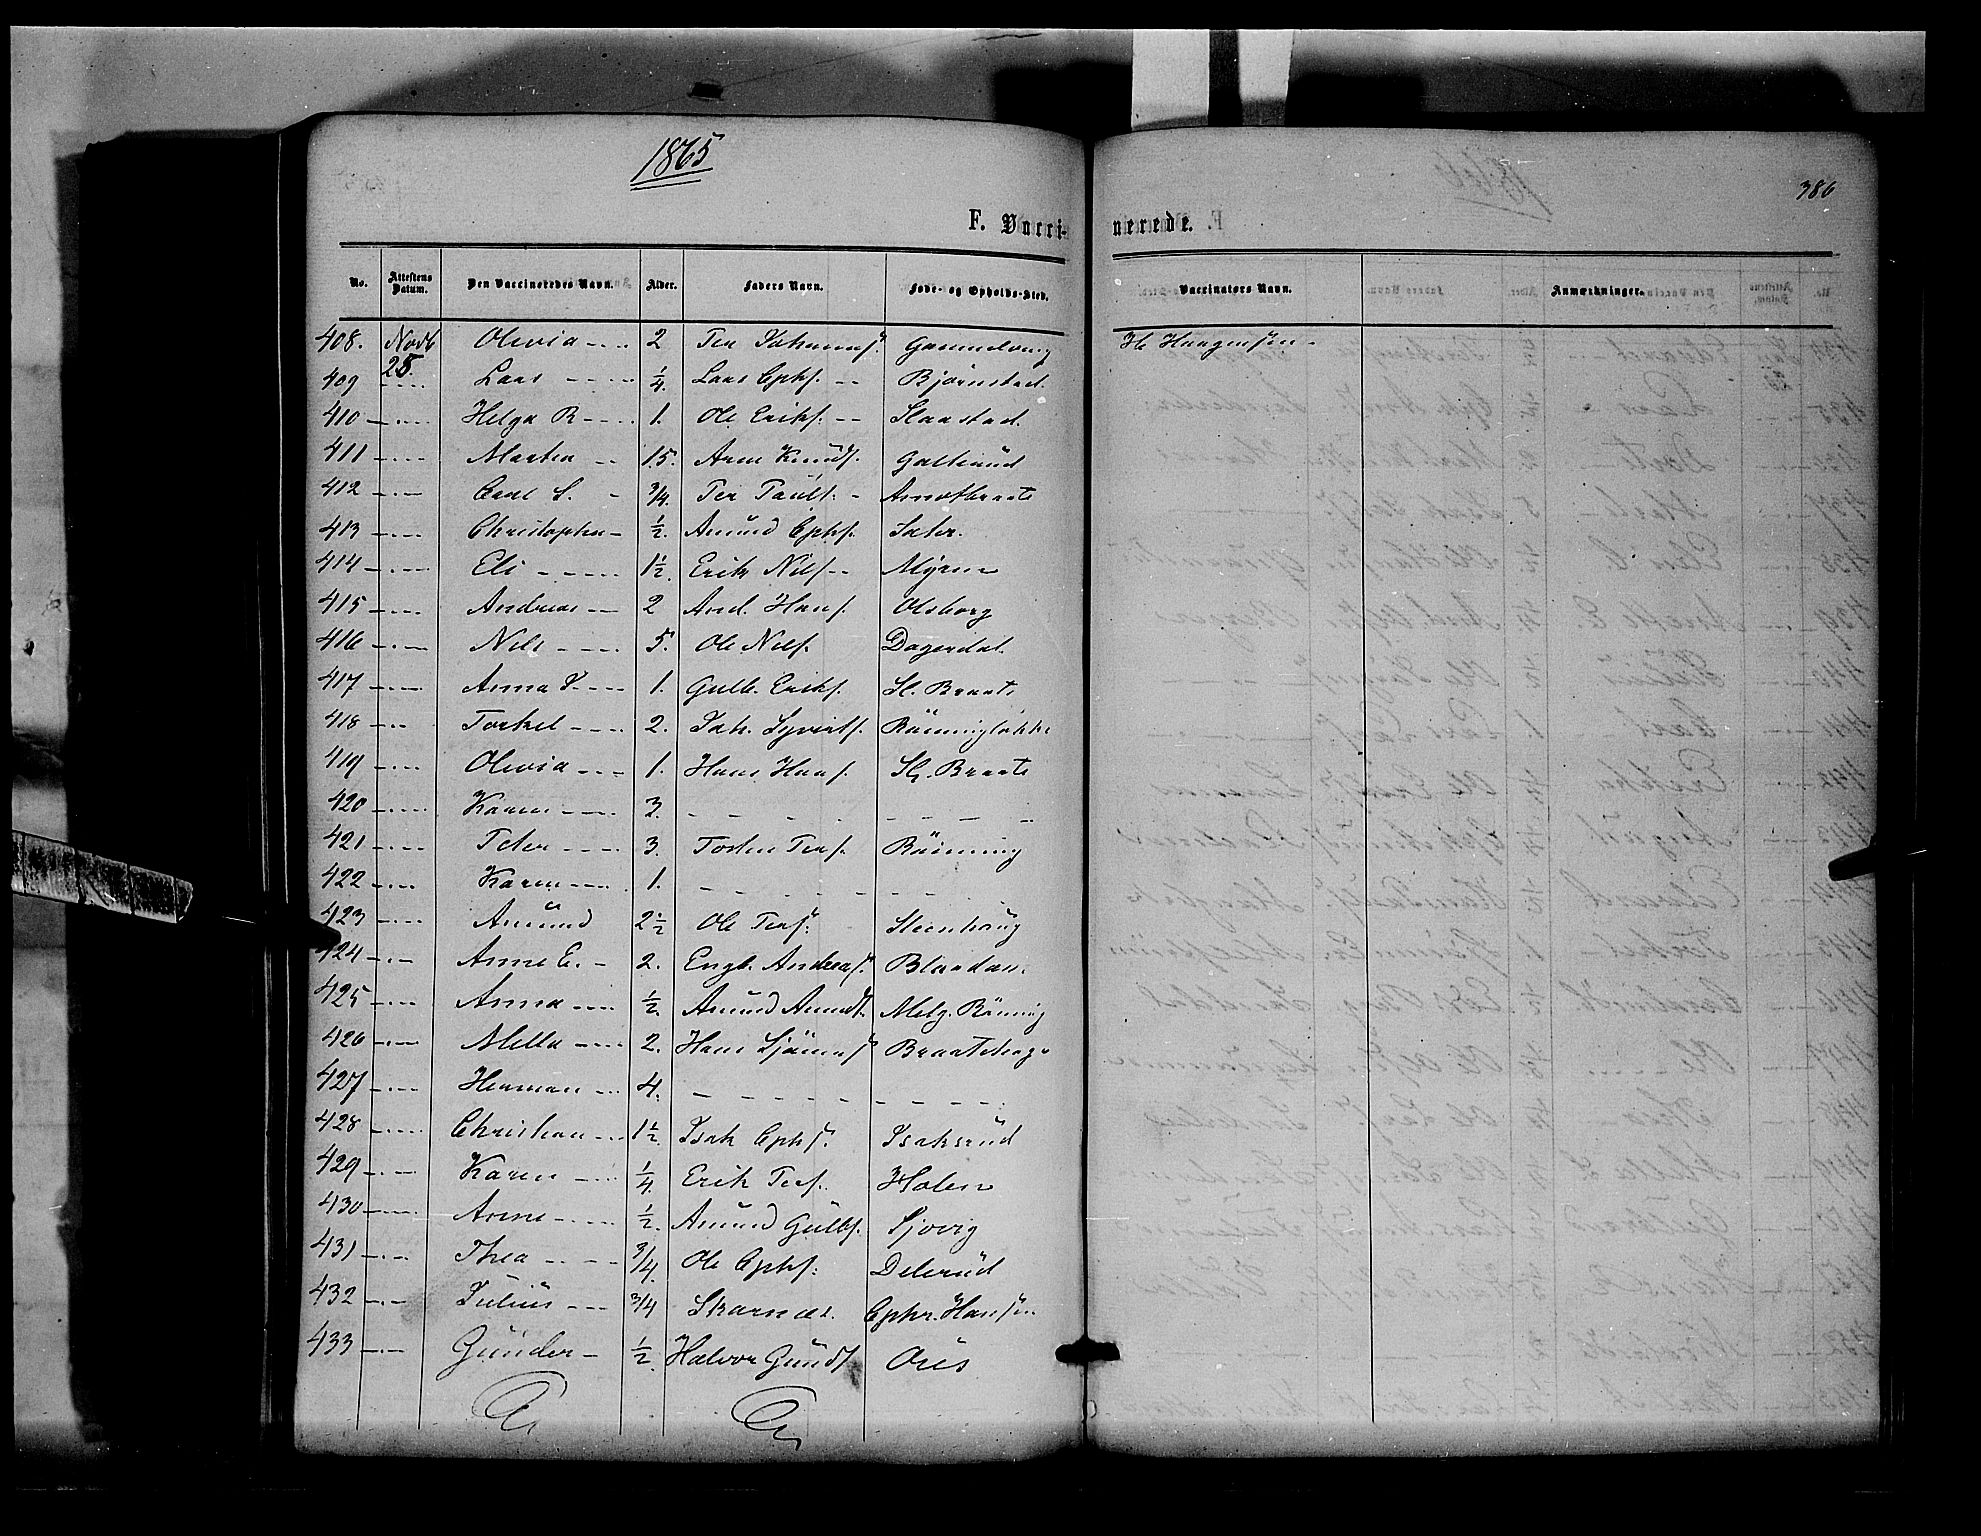 1865
386
F. Vacci- nerede.
No. Attestens Datum. Den Vaccineredes Navn. Alder. Faders Navn. Føde- og Opholds-Sted. Vaccinatørs Navn. Anmærkninger.
408. Novb 25. Olivia 2 Per Johannesſ. Gammelveng H. Haagensen
409 Lars 1/4. Lars Ephſ. Bjørnstad.
410 Helga R 1. Ole Erikſ. Slaastad.
411 Marthea 15. Arne Knudſ. Galterud
412 Carl S. 3/4. Per Paulſ.
413 Christopher 1/2. Amund Ephſ. Sæter.
414 Eli 1 1/2. Erik Nilſ Myren
415 Andreas 2 And. Hanſ. Olsborg
416 Nils 5. Ole Nilſ. Dagsrdal.
417 Anna 1. Gulb. Erikſ. Sl. Braate
418 Torkel 2. Joh. Syverſ. Rönningløkke
419 Olivia 1. Hans Hanſ. Sl. Braate
420 Karen 3.
421 Peter 3. Torsten Perſ. Rönning
422 Karen 1.
423 Amund 2 1/2 Ole Perſ. Steenhoug
424 Anne E. 2. Engb. Andreasſ.
425 Anna 1/2. Amund Amundſ. Melg. Rönning
426 Mella 2. Hans Braatehage
427 Herman 4.
428 Christian 1 1/2. Isak Ephſ. Isaksrud
429 Karen 1/4. Erik Perſ. Holen
430 Anne 1/2. Amund Gulbſ. Sjovig
431 Thea 3/4. Ole Ephſ. Delerud
432 Julius 3/4 Skarnæs. Ephr. Hansen
433 Gunder 1/2. Halvor Gundſ Aus